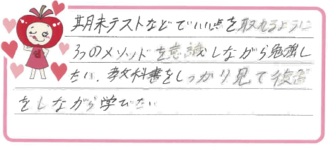 期末テストなどでいい点を取れるように
3つのメソッドを意識しながら勉強し
たい、教科書をしっかり見て復習
をしながら学びたい